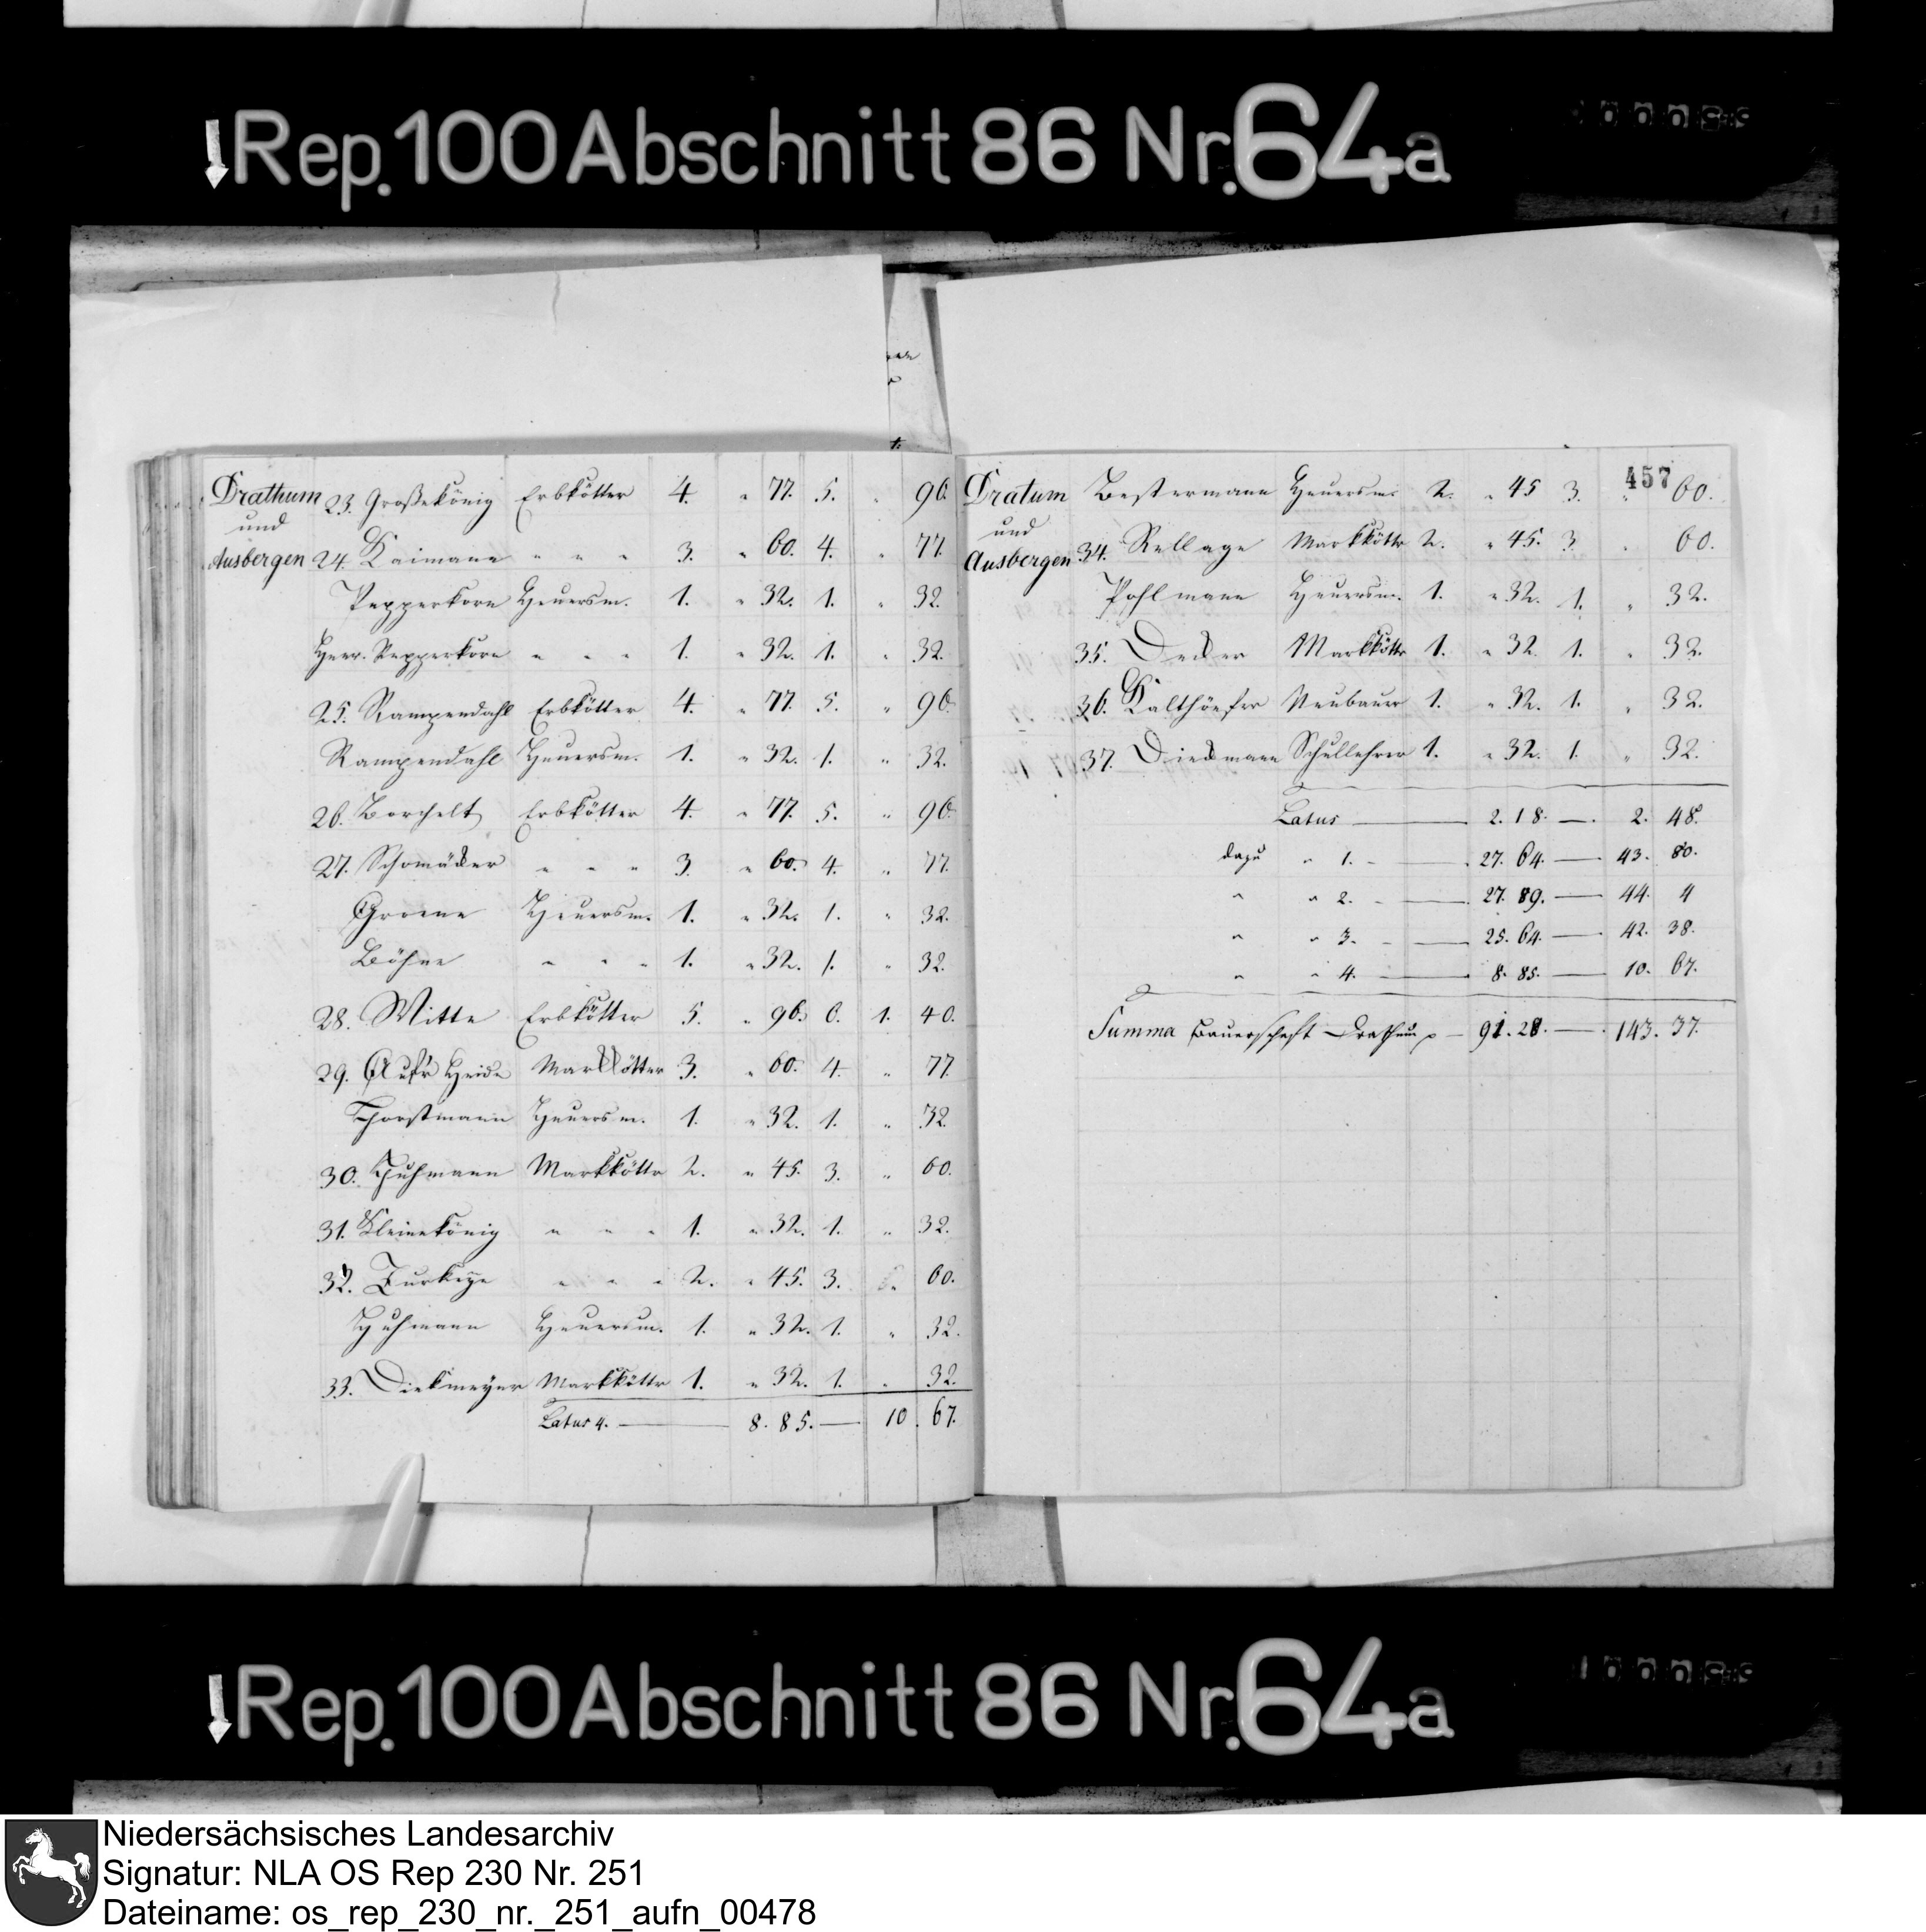 Rep. 100 Abschnitt 86 Nr. 64a
Drathum 23. Großekönig Erbkötter 4. " 77. 5. " 96.
und
Ausbergen 24. Kaimann " " " 3. " 60. 4. " 77.
Pepperkorn Heuersm. 1. " 32. 1. " 32.
Pepperkorn " " " 1. " 32. 1. " 32.
25. Rampendahl Erbkötter 4. " 77. 5. " 96.
Rampendahl Heuersm. 1. " 32. 1. " 32.
26. Borchelt Erbkötter 4. " 77. 5. " 96.
27. Schomäcker " " " 3. " 60. 4. " 77.
Groene Heuersm. 1. " 32. 1. " 32.
Böhne " " " 1. " 32. 1. " 32.
28. Witte Erbkötter 5. " 96. 6. 1. 40.
29. Auf'r Heide Markkötter 3. " 60. 4. " 77.
Horstmann Heuersm. 1. " 32. 1. " 32.
30. Huhmann Markkötter 2. " 45. 3. " 60.
31. Kleinekönig " " " 1. " 32. 1. " 32.
32. " " " 2. " 45. 3. " 60.
Huhmann Heuersm. 1. " 32. 1. " 32.
33. Diekmeyer Markkötter 1. " 32. 1. " 32.
Latus 4. — 8. 85. — 10. 67.
457
Dratum Bestermann Heuersm. 2. " 45 3. " 60.
und
Ausbergen 34. Rellage Markkötter 2. " 45. 3. " 60.
Pohlmann Heuersm. 1. " 32. 1. " 32.
35. Decker Markkötter 1. " 32. 1. " 32.
36. Kalthöfer Neubauer 1. " 32. 1. " 32.
37. Dieckmann Schullehrer 1. " 32. 1. " 32.
Latus — 2. 18. — 2. 48.
dazu " 1. — 27. 64. — 43. 80.
" " 2. — 27. 89. — 44. 4
" " 3. — 25. 64. — 42. 38.
" " 4. — 8. 85. — 10. 67.
Summa Bauerschaft Drathum — 92. 28. — 143. 37.
Rep. 100 Abschnitt 86 Nr. 64a
Niedersächsisches Landesarchiv
Signatur: NLA OS Rep 230 Nr. 251
Dateiname: os_rep_230_nr._251_aufn_00478